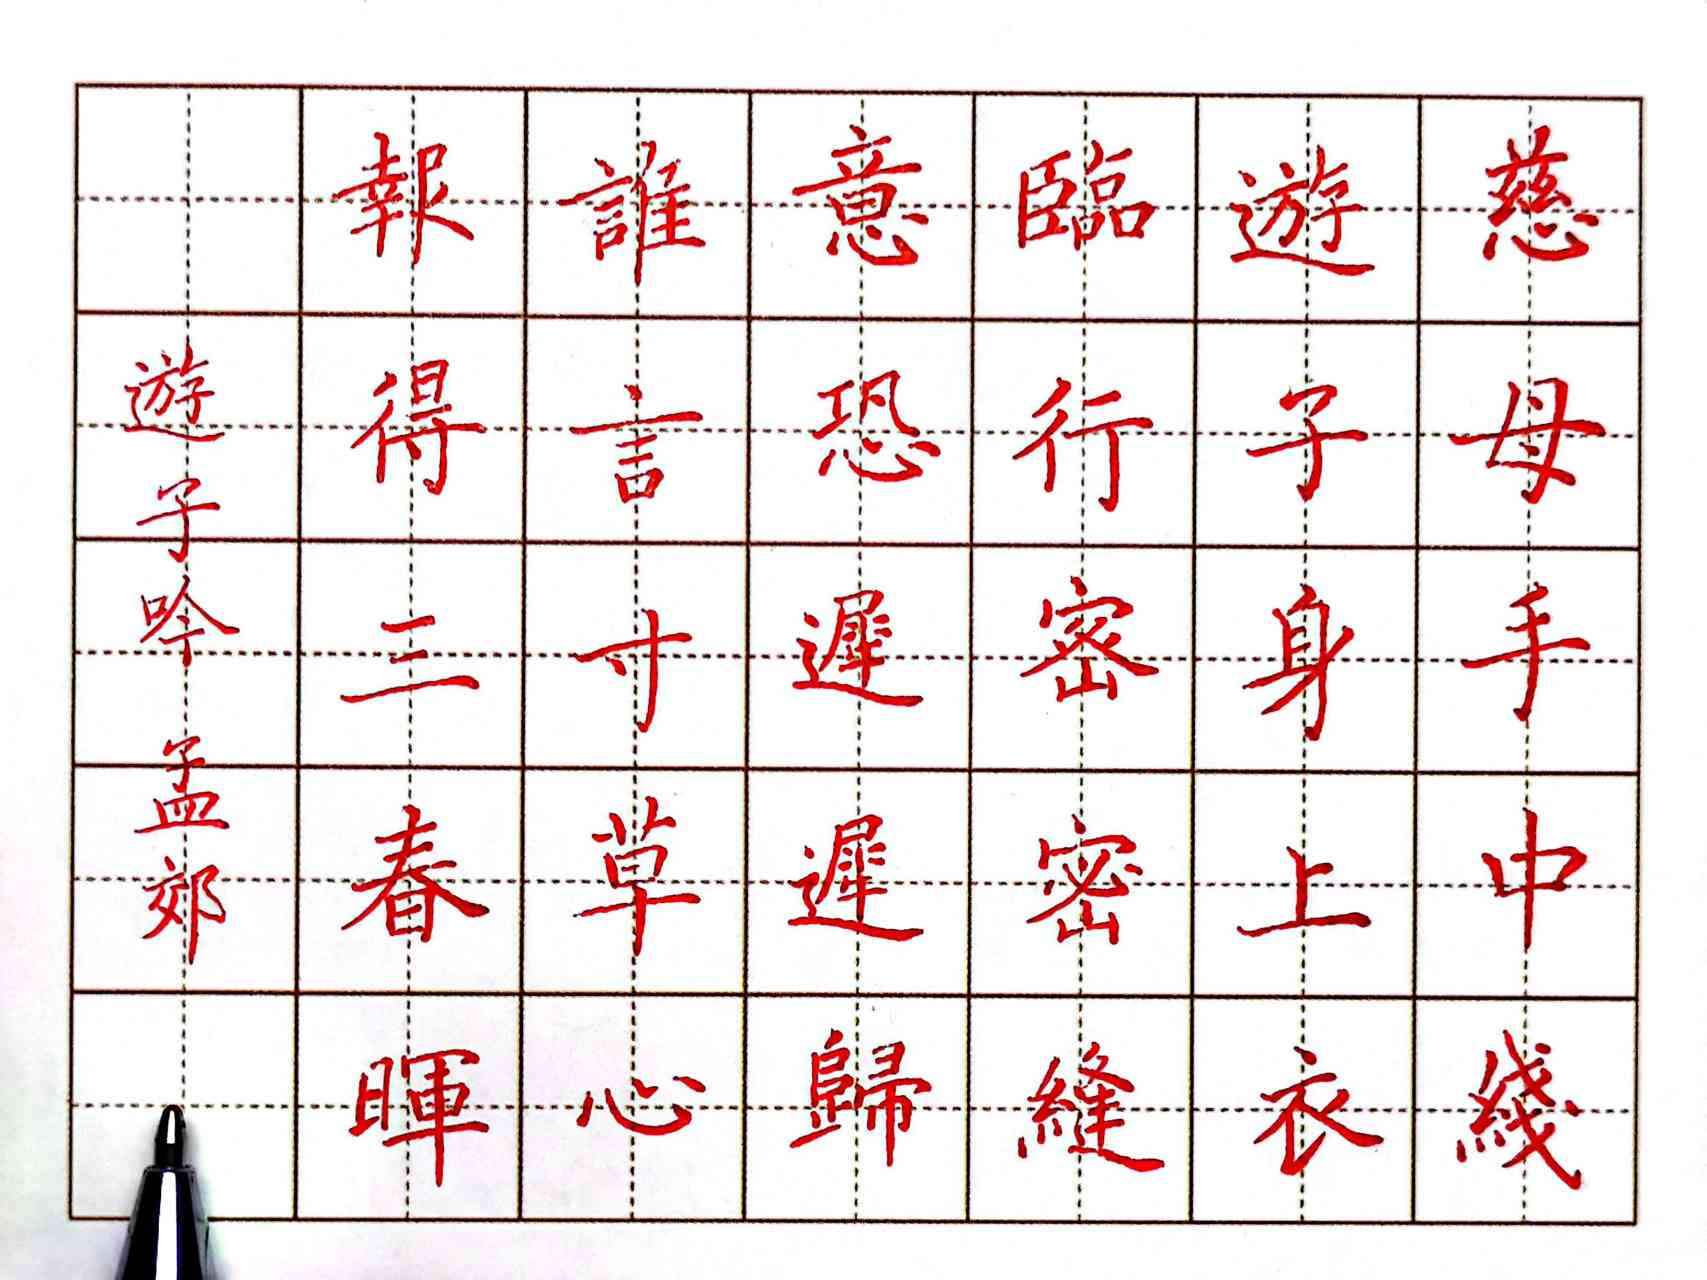 慈母手中綫
遊子身上衣
臨行密密縫
意恐遲遲歸
誰言寸草心
報得三春暉
遊子吟 孟郊